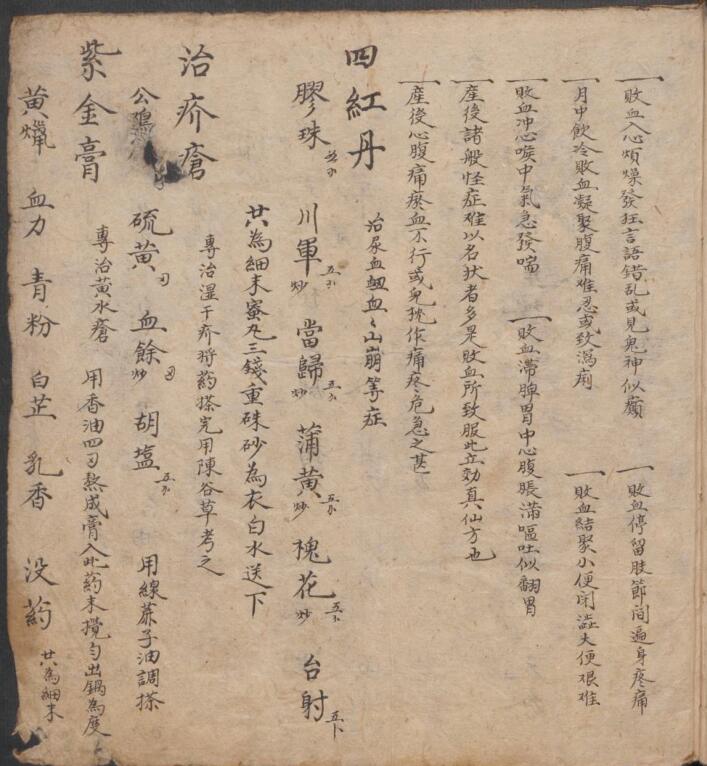 一敗血入心煩燥發狂言語錯乱或見鬼神似癲 一敗血停留肢節間遍身疼痛
一月中飲冷敗血凝聚腹痛难忍或致瀉痢 一敗血結聚小便闭澁大便艰难
一敗血冲心喉中氣急發喘 一敗血滞脾胃中心腹脹滿嘔吐似翻胃
一產後諸般怪症难以名状者多是敗血所致服此立効真仙方也
一產後心腹痛瘀血不行或兒枕作痛疼危急之甚
四紅丹 治尿血衄血
膠珠 川軍炒 當歸炒 蒲黄炒 槐花炒 台射
廿為細末蜜丸三錢重硃砂為衣白水送下
治疥瘡 專治湿干疥将药搽完用陳谷草考之
公 硫黄 血餘炒 胡塩 用線蔴子油調搽
紫金膏 專治黄水瘡 用香油四刄熬成膏入此葯末攪匀出鍋為度
黄爉 血力 青粉 白芷 乳香 没葯 廿為細末